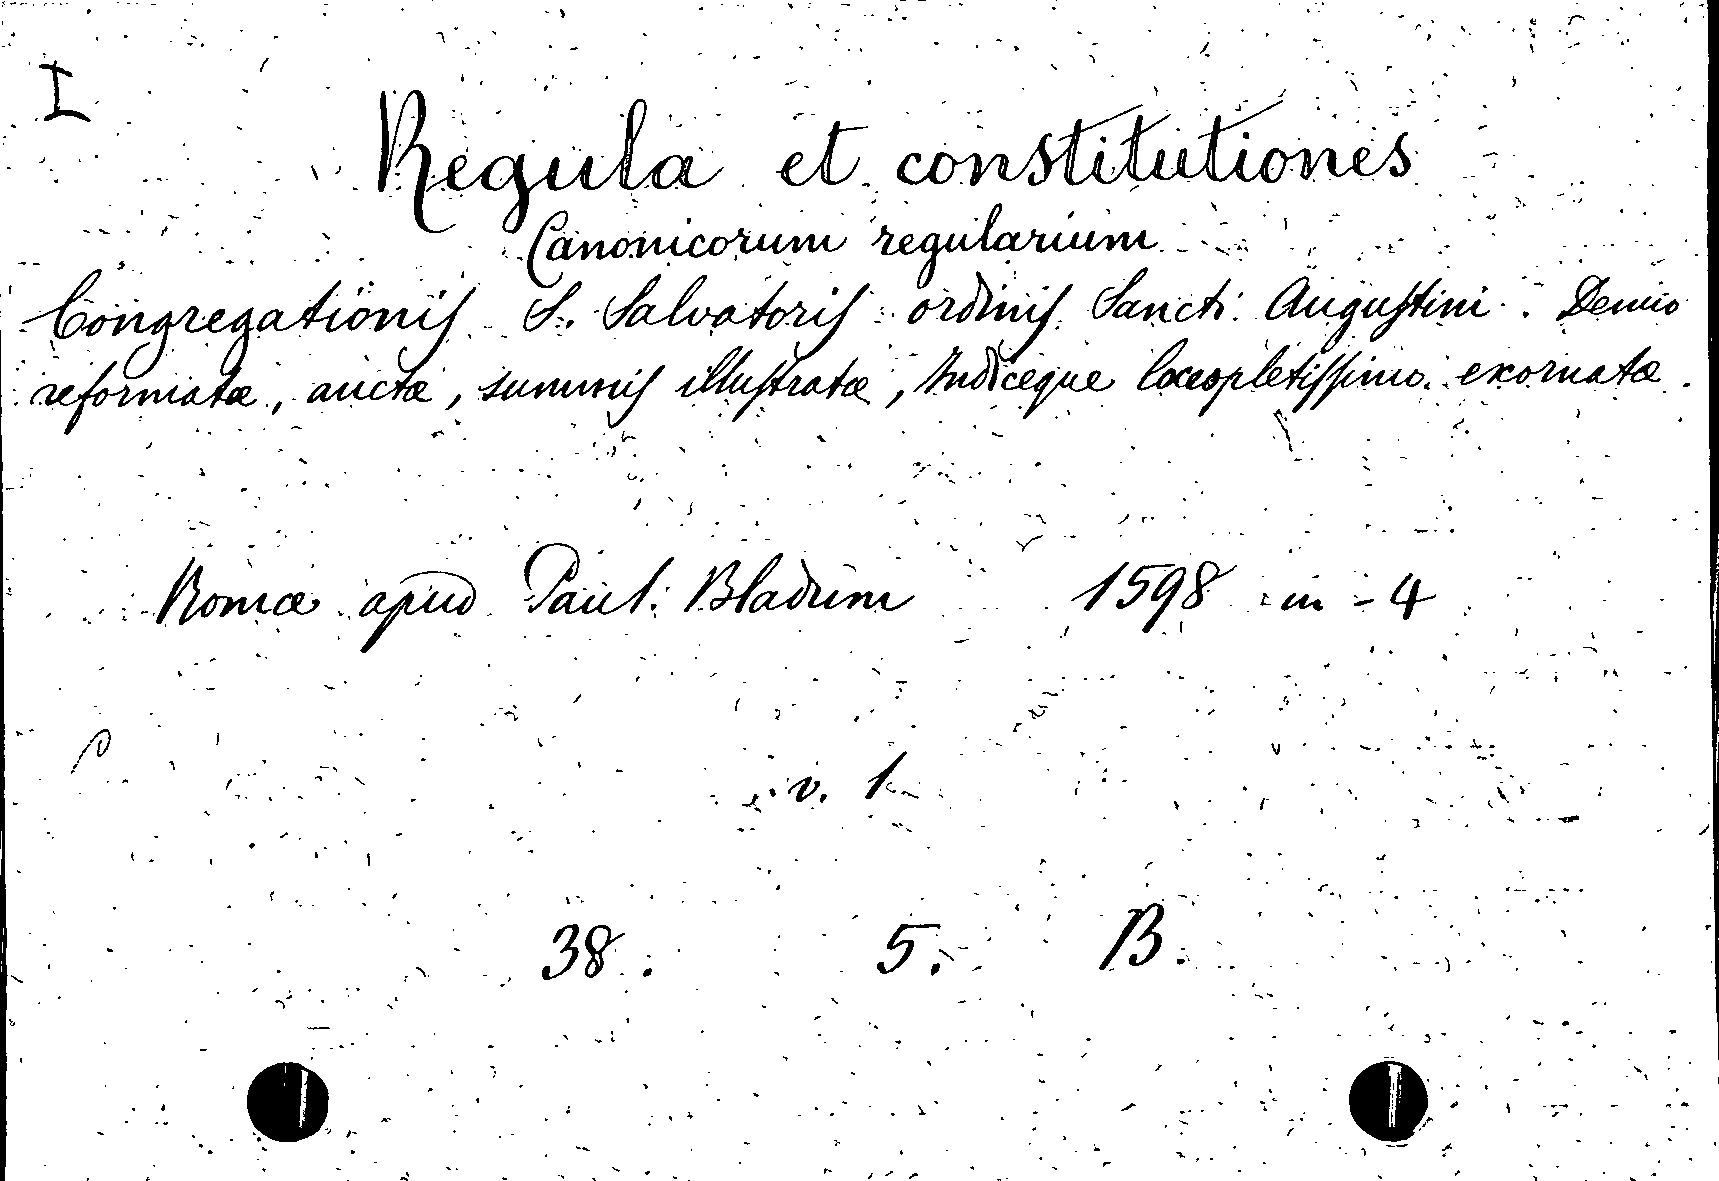 I
Regula et constitutiones
Canonicorum regularium
Congregationis S. Salvatoris ordinis Sancti Augustini. Denuo
reformatæ, auctæ, summis illustratæ, Indiceque locupletissimo exornatæ.
Romæ apud Paul. Bladum 1598 in-4
v. 1
38. 5. B.